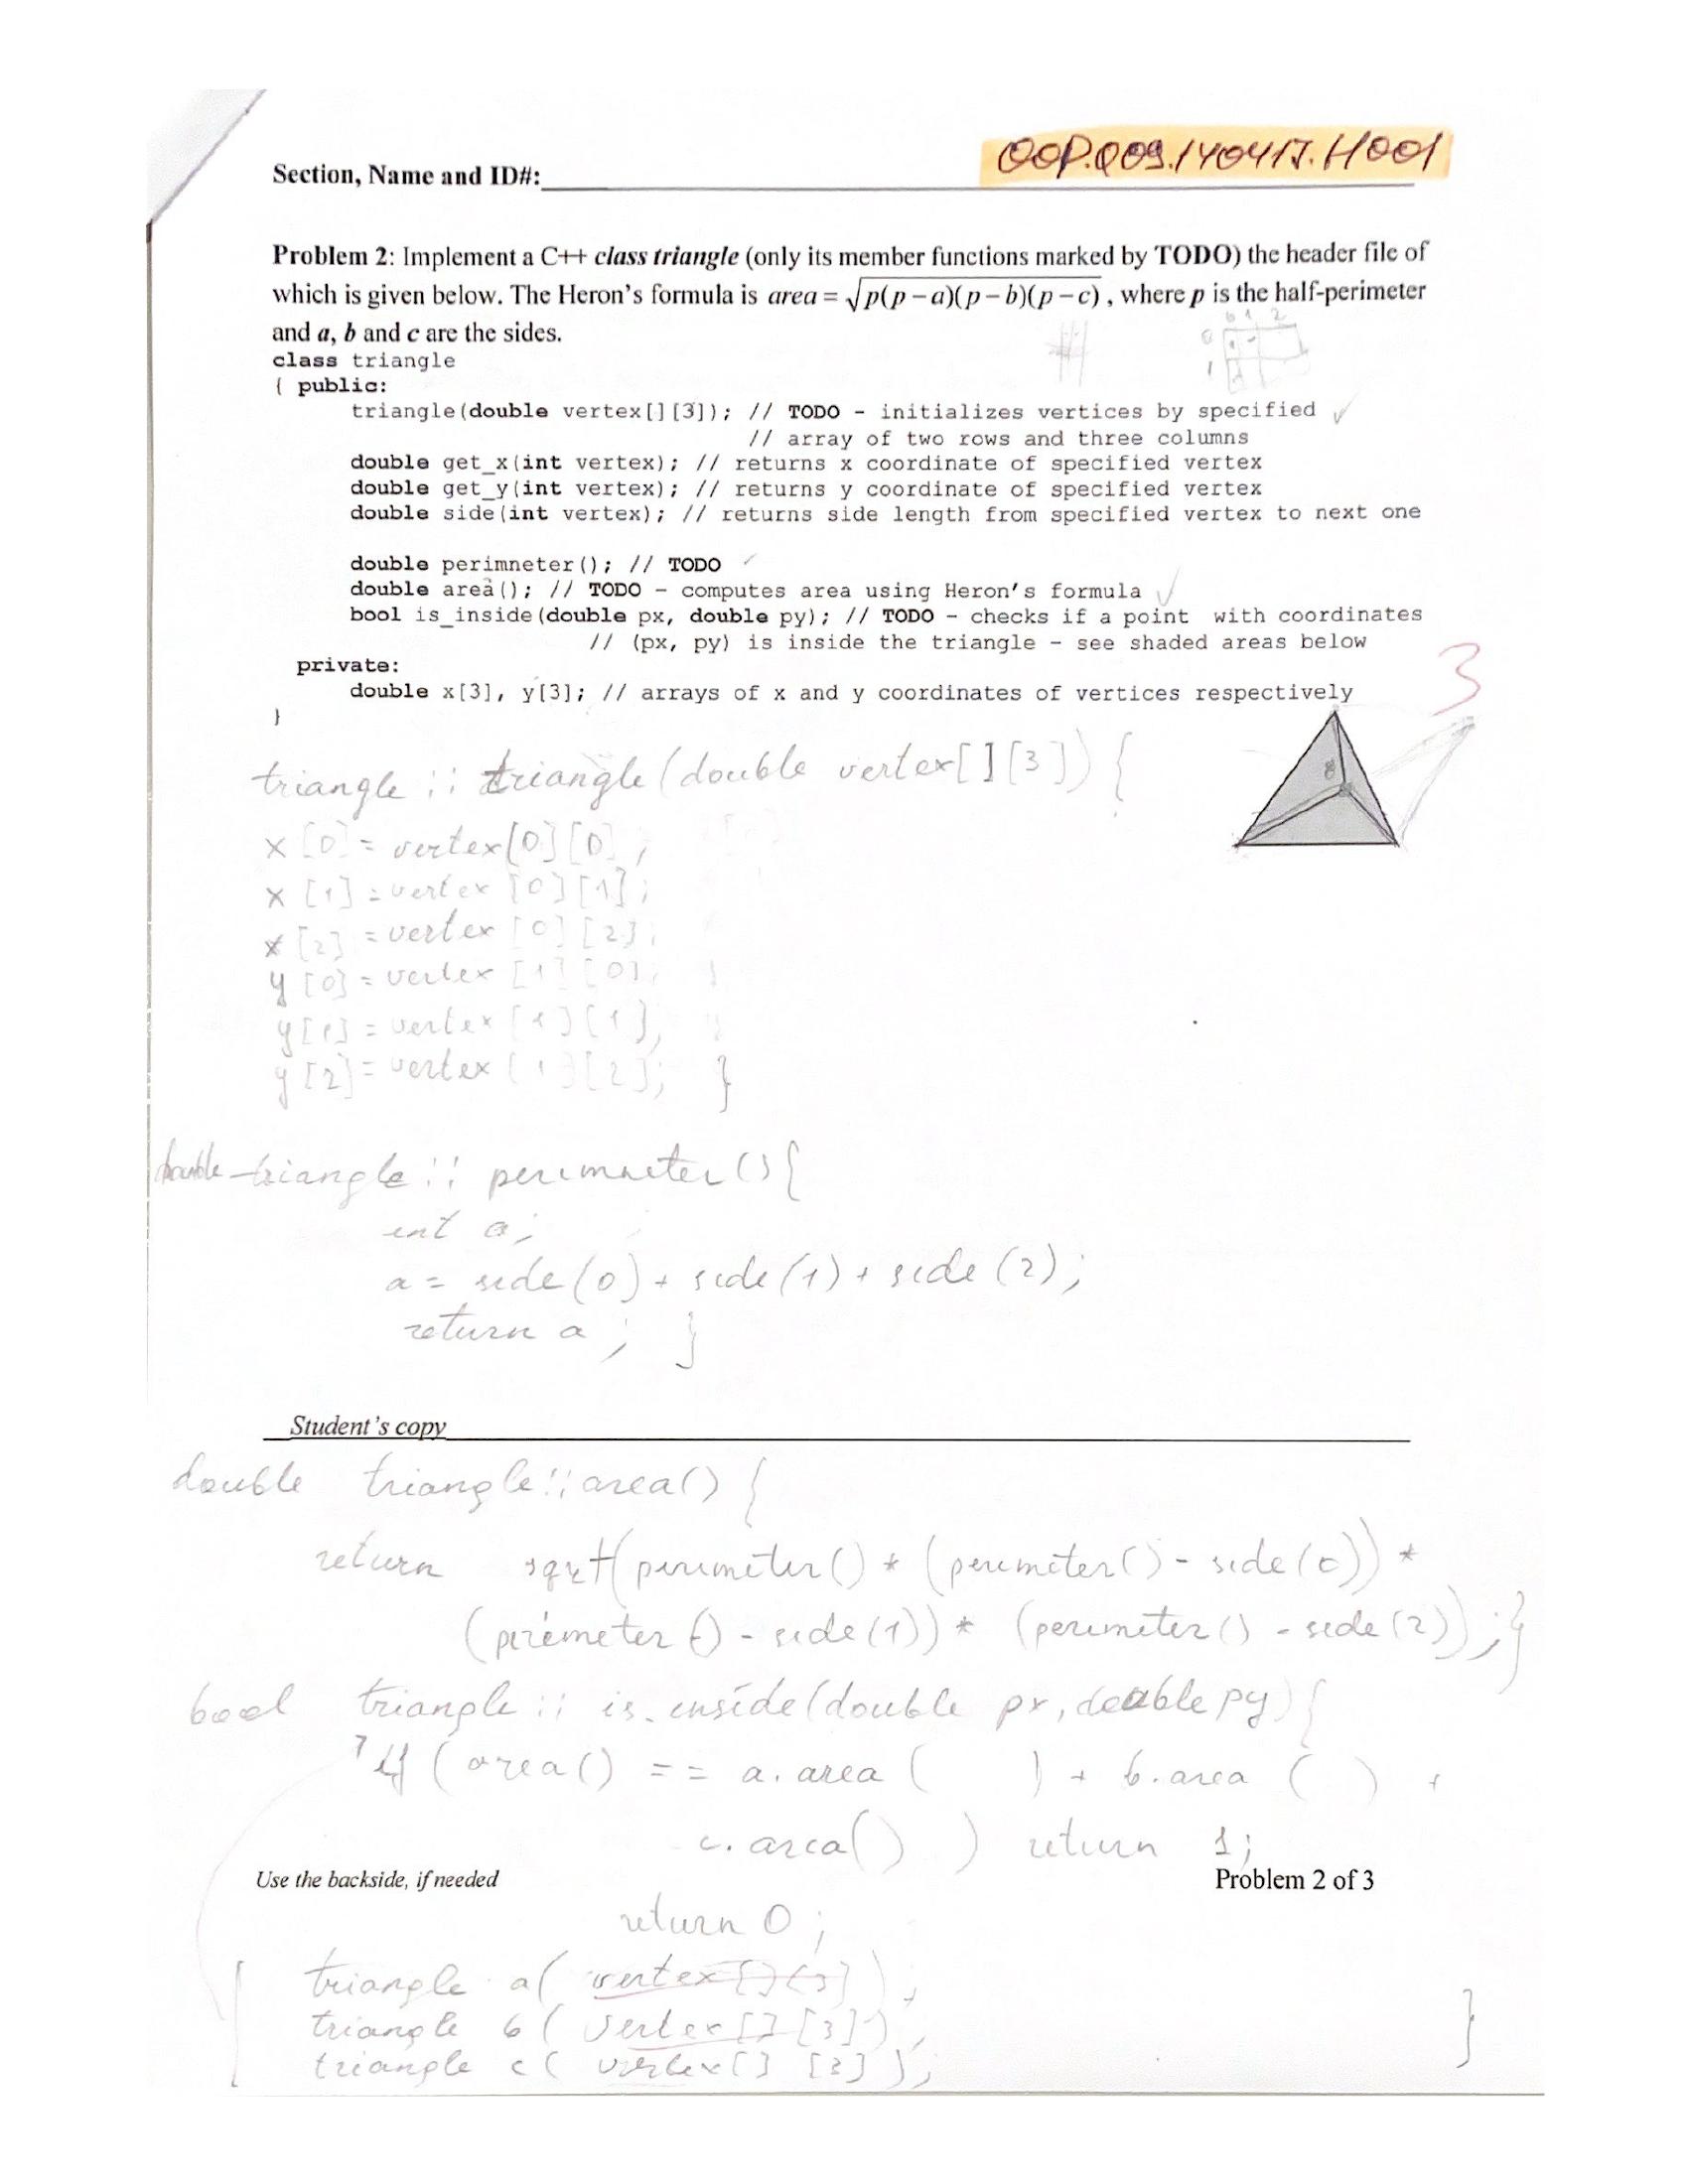 OOP.Q09.140417.H001
Section, Name and ID#:
Problem 2: Implement a C++ class triangle (only its member functions marked by TODO) the header file of
which is given below. The Heron's formula is area = √p(p−a)(p−b)(p−c) , where p is the half-perimeter
and a, b and c are the sides.
0 1 2
0
1
class triangle
{ public:
triangle(double vertex[][3]); // TODO - initializes vertices by specified ✓
// array of two rows and three columns
double get_x(int vertex); // returns x coordinate of specified vertex
double get_y(int vertex); // returns y coordinate of specified vertex
double side(int vertex); // returns side length from specified vertex to next one
double perimneter(); // TODO ✓
double area(); // TODO - computes area using Heron's formula ✓
bool is_inside(double px, double py); // TODO - checks if a point with coordinates
// (px, py) is inside the triangle - see shaded areas below
private:
double x[3], y[3]; // arrays of x and y coordinates of vertices respectively
}
3
triangle :: triangle(double vertex[][3]) {
x[0] = vertex[0][0];
x[1] = vertex[0][1];
x[2] = vertex[0][2];
y[0] = vertex[1][0];
y[1] = vertex[1][1];
y[2] = vertex[1][2]; }
double triangle :: perimneter() {
int a;
a = side(0) + side(1) + side(2);
return a; }
Student's copy
double triangle::area() {
return sqrt(perimeter() * (perimeter() - side(0)) *
(perimeter() - side(1)) * (perimeter() - side(2)); }
bool triangle :: is_inside(double px, double py) {
if (area() == a.area( ) + b.area ( ) +
c.area() ) return 1;
Use the backside, if needed
Problem 2 of 3
return 0;
triangle a( vertex[][3] );
triangle b( vertex[][3] );
triangle c( vertex[][3] ); }